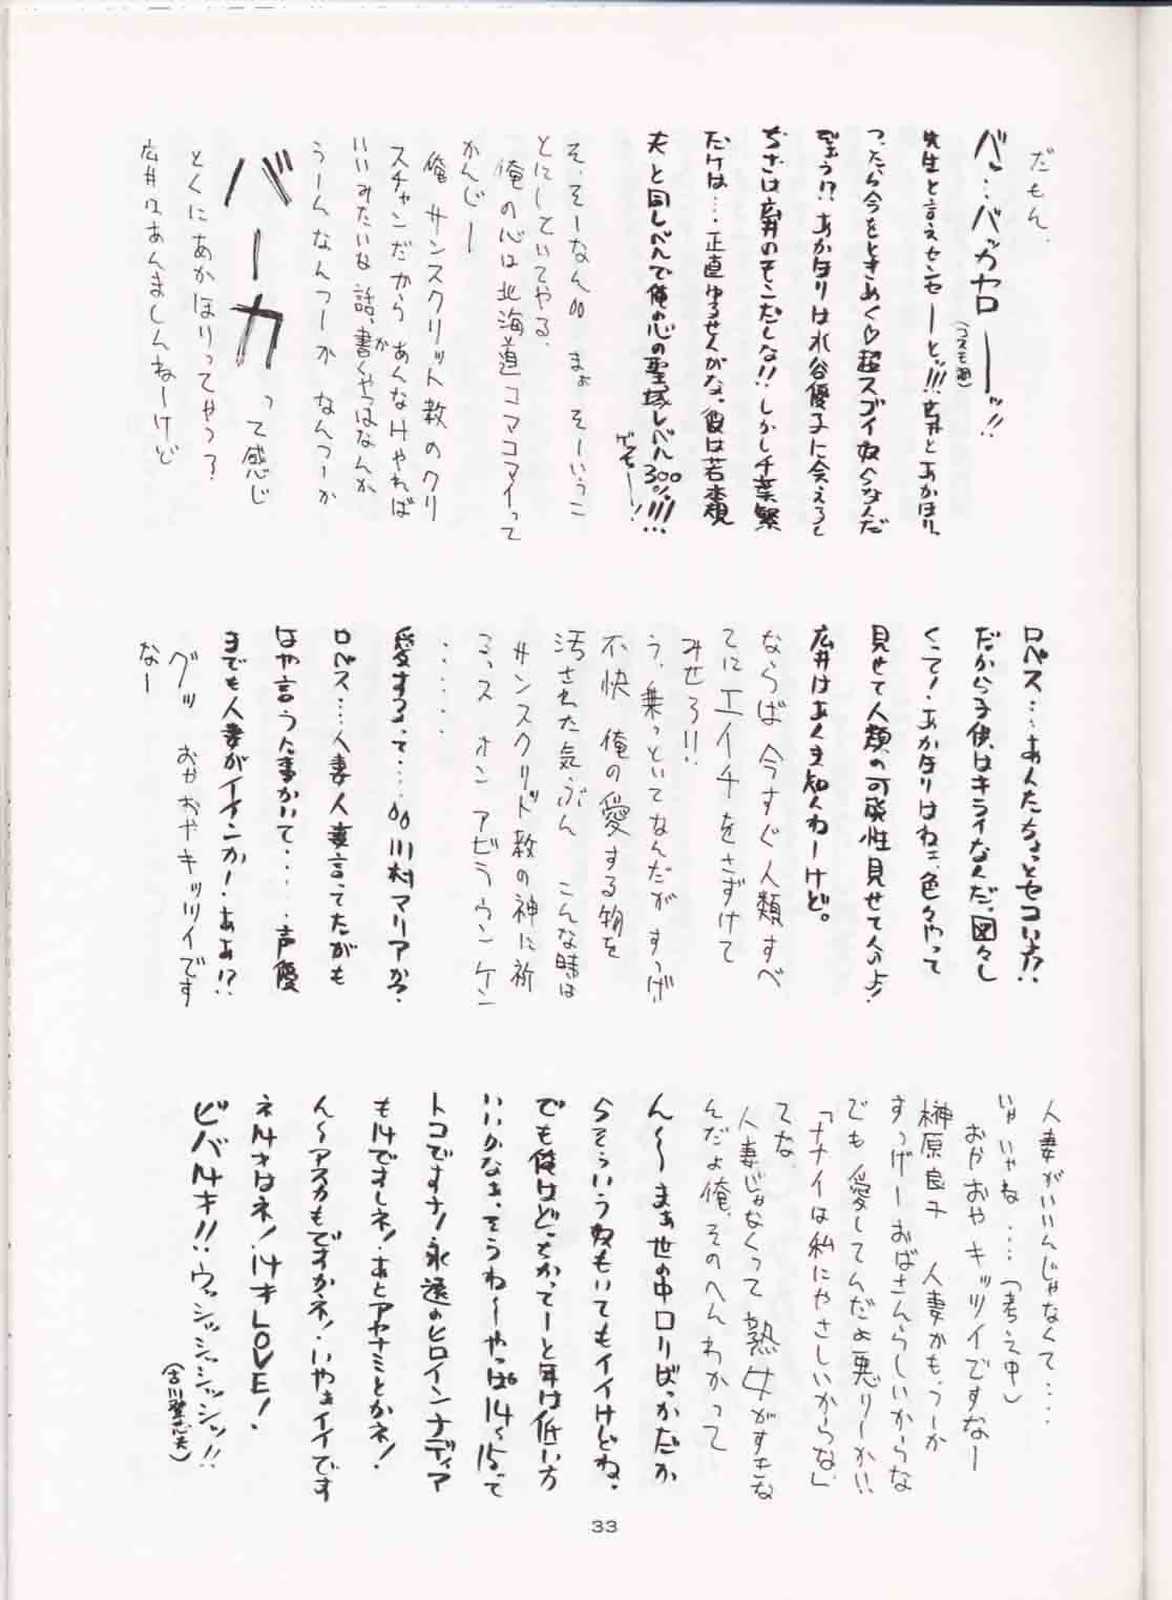 だもん、
バ…バッカヤローーッ!!
(コスモ調)
先生と言えセンセーーと!!! 広井とあかほりっ
つったら今をときめく♡超スゴイ奴らなんだ
ぞぅ!? あかほりは水谷優子に会えるし
ちさは広井のモンだしな!! しかし千葉繁
だけは…正直ゆるせんがな。彼は若本規
夫と同レベルで俺の心の聖域レベル300%!!!…
ゲヘモー!
そ、そーなん?? まぁ そーいうこ
とにしといてやる、
俺の心は北海道コマコマイって
かんじー
俺 サンスクリット教のクリ
スチャンだから あんなけやれば
いいみたいな話、書くやつはなんか
か
うーんなんつーか なんつーか
バーカ って感じ
とくにあかほりってやつ?
広井はあんましんねーけど
ロペス…あんたちょっとセコい方!?
だから子供はキライなんだ。図々し
くって! あかほりはねェ、色々やって
見せて人類の可能性見せてんのよ!
広井はあくま知んねーけど。
ならば 今すぐ人類すべ
てに エイチをさずけて
みせろ!!
う、乗っといてなんだが すっげ
不快 俺の愛する物を
汚された気ぶん こんな時は
サンスクリット教の神に祈
る、ス オン アビラウンケン
・・・・・
愛するって…??川村マリアか?
ロペス…人妻人妻言ってたがも
はや言うた事かいて…。声優
までも人妻がイインか! ああ!?
グッ おやおやキッツイです
なー
人妻がいいんじゃなくて…
いゃ いゃね…(考え中)
おやおや キッツイですなー
榊原良子 人妻かも、つーか
すっげーおばさんらしいからな
でも 愛してんだよ悪りーかい
「ナナイは私にやさしいからな」
てな
人妻じゃなくって 熟女がすきな
んだよ俺、そのへんわかって
ん〜〜 まぁ世の中ロリばっかだか
らそういう奴もいてもイイけどね。
でも俺はどっちかってーと年は低い方
いいかなぁ、そうね〜やっぱ14〜15って
トコですナ! 永遠のヒロインナディア
も14ですしネ! あとアヤナミとかネ!
ん〜アスカもですかネ! いやぁイイです
ネ14才はネ! 14才LOVE!
ビバ14才!! ウッシッシッシッシッ!!
(古川登志夫)
33